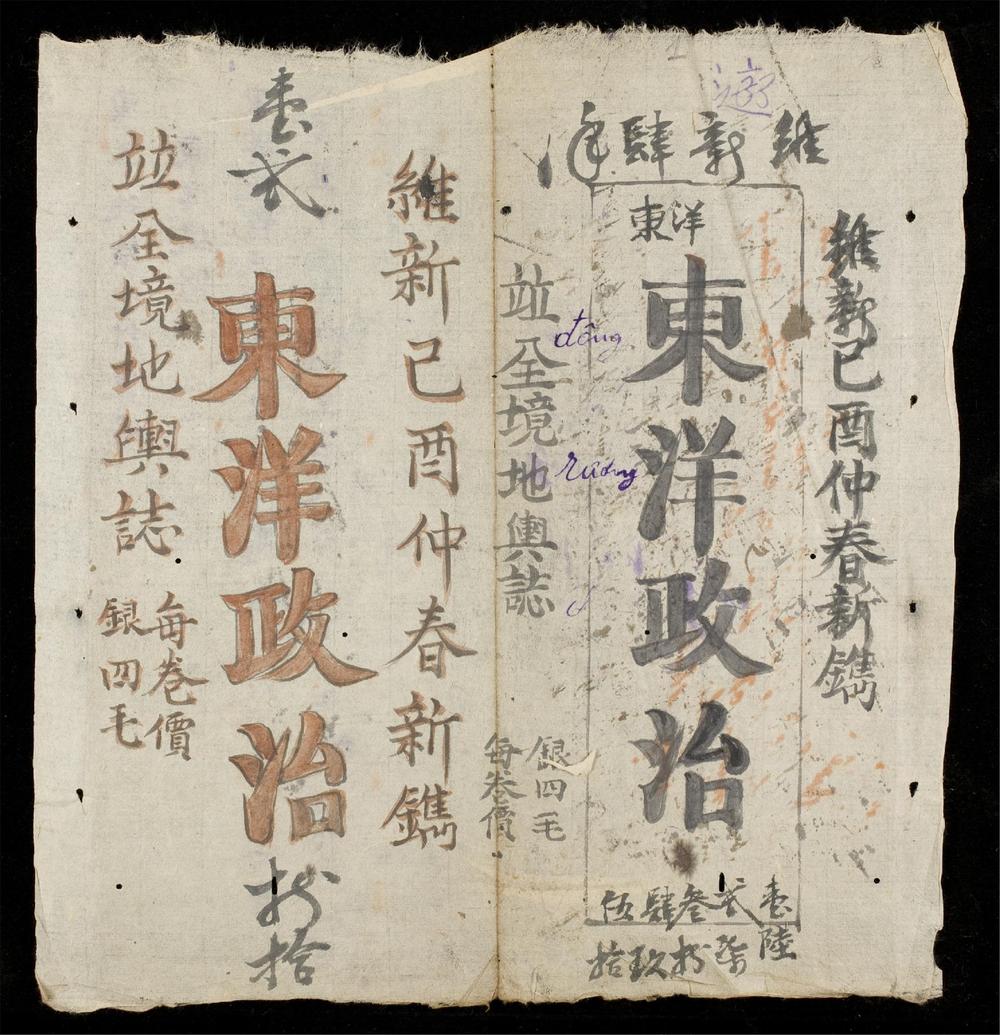 維新肆年
維新己酉仲春新鐫
東洋
東洋政治
壹貳叁肆伍
陸柒捌玖拾
đồng
ruông
竝全境地輿誌
每卷價
銀四毛
維新己酉仲春新鐫
壹貳
東洋政治
捌拾
竝全境地輿誌
每卷價
銀四毛